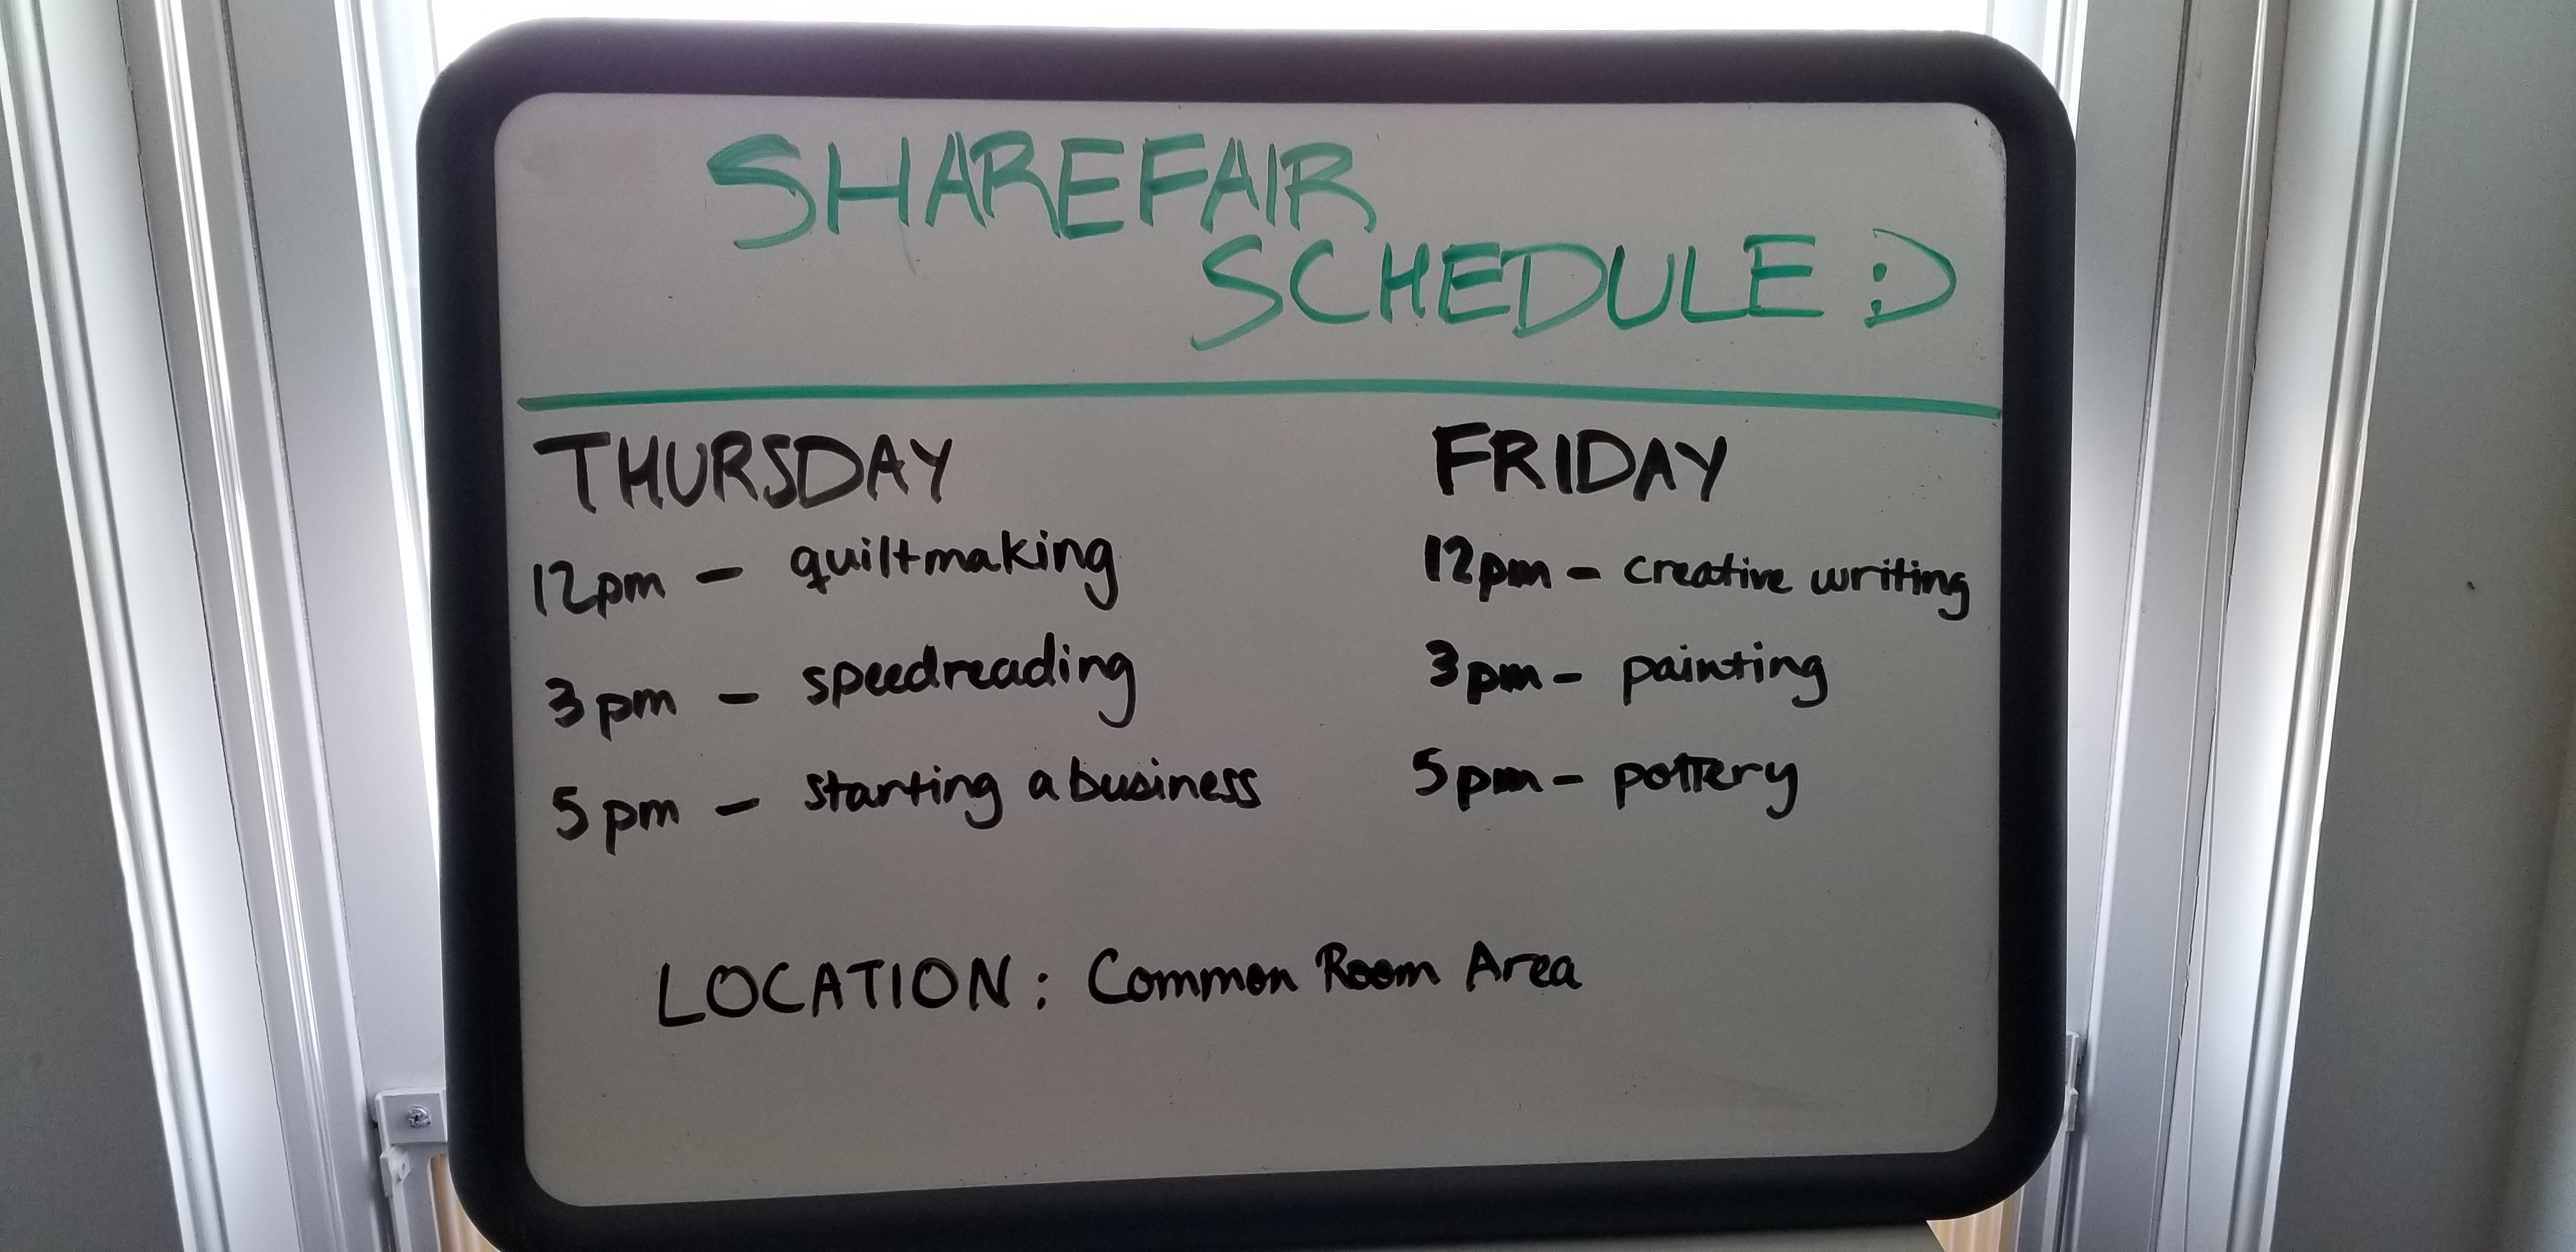 SHAREFAIR
SCHEDULE :D
THURSDAY
12pm - quiltmaking
3pm - speedreading
5pm - starting a business
FRIDAY
12pm - creative writing
3pm - painting
5pm - pottery
LOCATION: Common Room Area